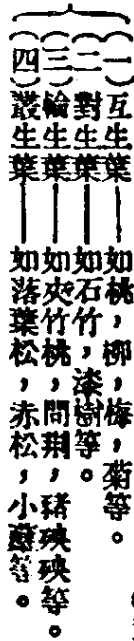 (一)互生葉——如桃，柳，梅，菊等。
(二)對生葉——如石竹，漆樹等。
(三)輪生葉——如夾竹桃，問荆，猪殃殃等。
(四)叢生葉——如落葉松，赤松，小蘗等。